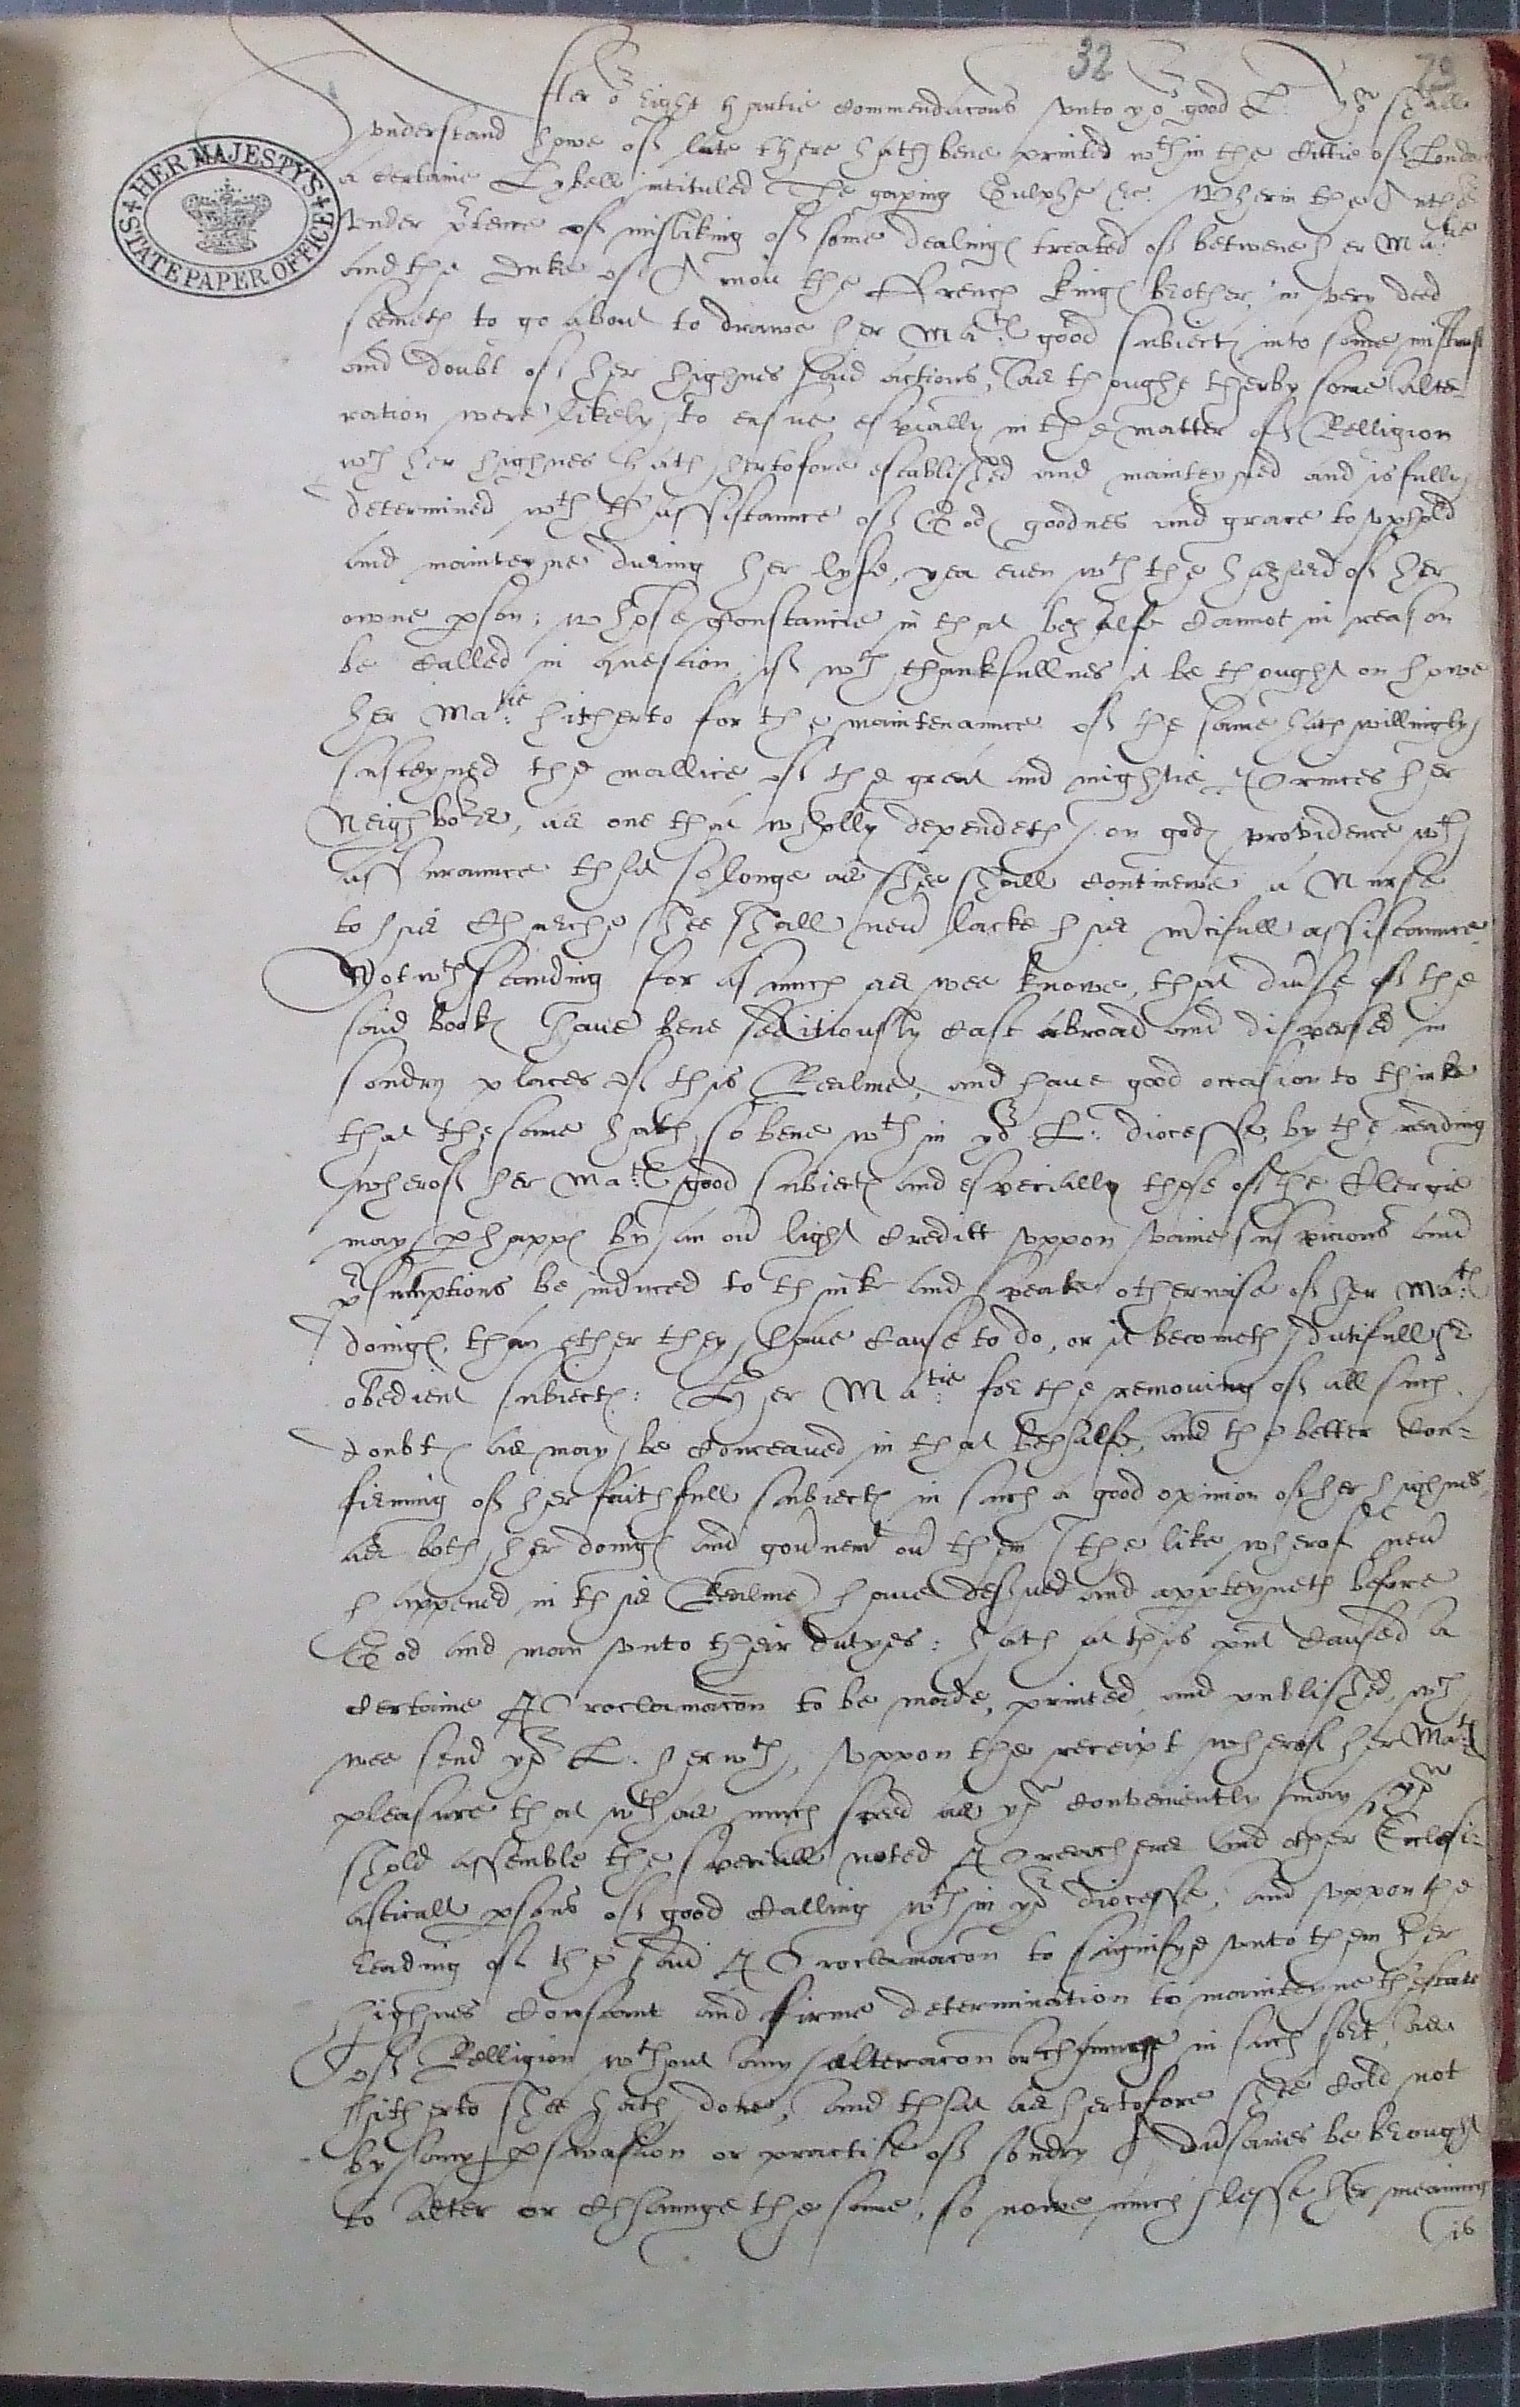 32
79
HER MAJESTY'S
STATE PAPER OFFICE
After or right hartie Commendacons vnto yor good L. yor shall
vnderstand howe of late there hath bene printed wthin the Cittie of London
a certaine Lybell intituled The gaping Gulphe &c. Wherin the Author
vnder ptence of misliking of some dealings treated of betwene her Matie
and the Duke of Aniou the French kings brother, in very deed
seemeth to go about to drawe her Mats good subiects into some mistrust
and doubt of her highnes said actions, as thoughe therby some alte-
ration were likely to ensue especially in the matter of Relligion
wch her highnes hath hertofore established and mainteyned and is fully
determined wth th'assistaunce of Gods goodnes and grace to vphold
and mainteyne during her lyfe, yea even wth the hazard of her
owne pson; whose Constancie in that behalfe Cannot in reason
be Called in question if wth thankfullnes it be thought on howe
her Matie hitherto for the maintenaunce of the same hath willingly
susteyned the mallice of the great and mightie Princes her
Neighbors, as one that wholly dependeth on gods providence wth
assuraunce that so longe as shee shall Continewe a Nurse
to his Churche shee shall neur lacke his mcifull assistaunce.
Notwthstanding for as much as wee knowe, that diurse of the
said books have bene seditiously Cast abroad and dispersed in
sondry places of this Realme, and haue good occasion to thinke
that the same hath so bene wthin yor L: diocesse, by the reading
wherof her Mats good subiects and especially those of the Clergie
may phapps by an our light Creditt vppon vaine suspicions and
psumptions be induced to think and speake otherwise of her Mats
doings, than ether they haue Cause to do, or it becometh dutifull &
obedient subiects: Her Matie for the removing of all such
doubts as may be Conceaued in that behalfe, and the better Con-
firming of her faithfull subiects in such a good opinion of her highnes,
as both her doings and gournemt our them (the like wherof neur
happened in this Realme) haue desrued and appteyneth before
God and man vnto their dutyes: hath at this pnt Caused a
Certaine Proclamacon to be made, printed, and published, wch
wee send yor L. herwth, vppon the receipt wherof her Mats
pleasure that wth as much speed as yor Conveniently may yor
shold assemble the speciall noted Preachers and other Ecclesi-
asticall psons of good Calling wthin yor diocesse, and vppon the
reading of the said Proclamacon to signifye vnto them her
highnes Constant and firme determination to mainteyne the state
of Relligion wthout any alteracon or chaunge in such sort, as
hitherto shee hath done, and that as hertofore shee Cold not
by any pswasion or practise of sondry Adursaries be brought
to alter or Chaunge the same, so nowe much lesse her meaning
is